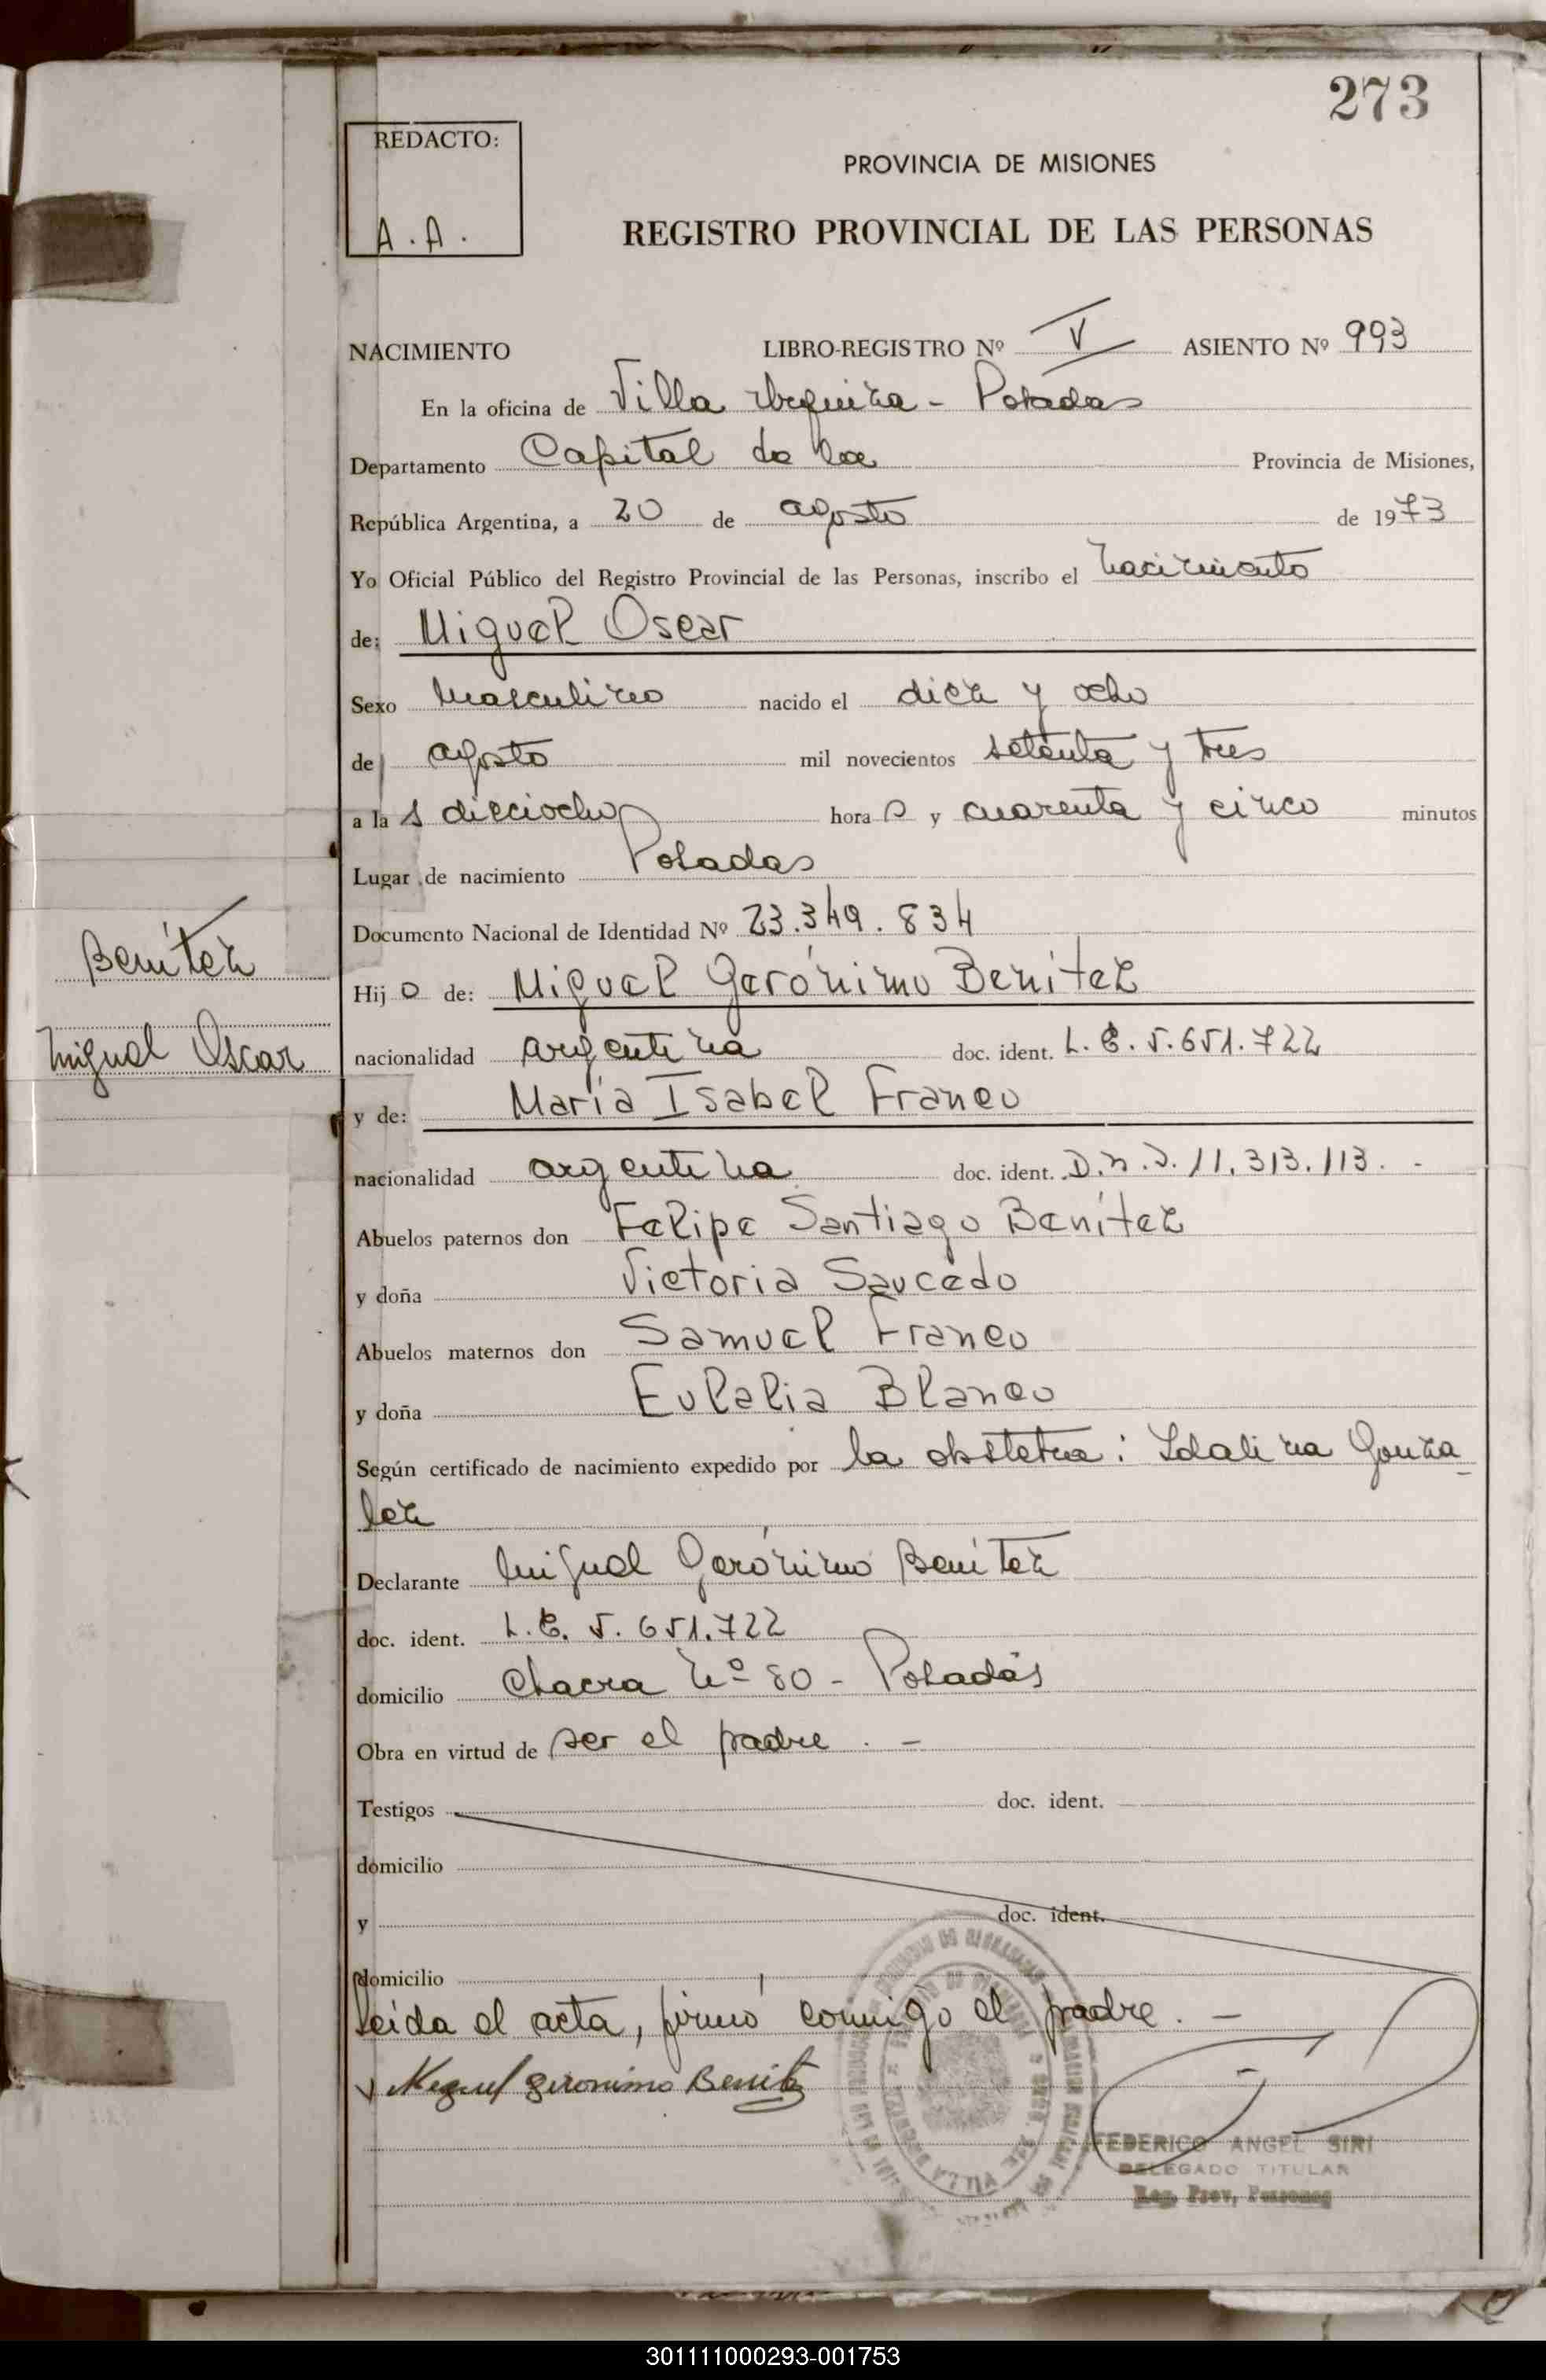 273
REDACTO:
A. A.
PROVINCIA DE MISIONES
REGISTRO PROVINCIAL DE LAS PERSONAS
NACIMIENTO LIBRO-REGISTRO Nº V ASIENTO Nº 993
En la oficina de Villa Urquiza - Posadas
Departamento Capital de la Provincia de Misiones,
República Argentina, a 20 de agosto de 1973
Yo Oficial Público del Registro Provincial de las Personas, inscribo el nacimiento
de: Miguel Oscar
Sexo masculino nacido el diez y ocho
de agosto mil novecientos setenta y tres
a la s dieciocho hora s y cuarenta y cinco minutos
Lugar de nacimiento Posadas
Documento Nacional de Identidad Nº 23.349.834
Benítez
Hij o de: Miguel Gerónimo Benítez
Miguel Oscar
nacionalidad argentina doc. ident. L. E. 5.651.722
y de: María Isabel Franco
nacionalidad argentina doc. ident. D.N.I. 11.313.113. -
Abuelos paternos don Felipe Santiago Benítez
y doña Victoria Saucedo
Abuelos maternos don Samuel Franco
y doña Eulalia Blanco
Según certificado de nacimiento expedido por la obstetra: Idalina Gonza
lez
Declarante Miguel Gerónimo Benítez
doc. ident. L. E. 5.651.722
domicilio Chacra Nº 80 - Posadas
Obra en virtud de ser el padre. -
Testigos doc. ident.
domicilio
y doc. ident.
domicilio
Leída el acta, firmó conmigo el padre. -
Miguel Geronimo Benitez
FEDERICO ANGEL SIRI
DELEGADO TITULAR
Reg. Prov. Personas
301111000293-001753